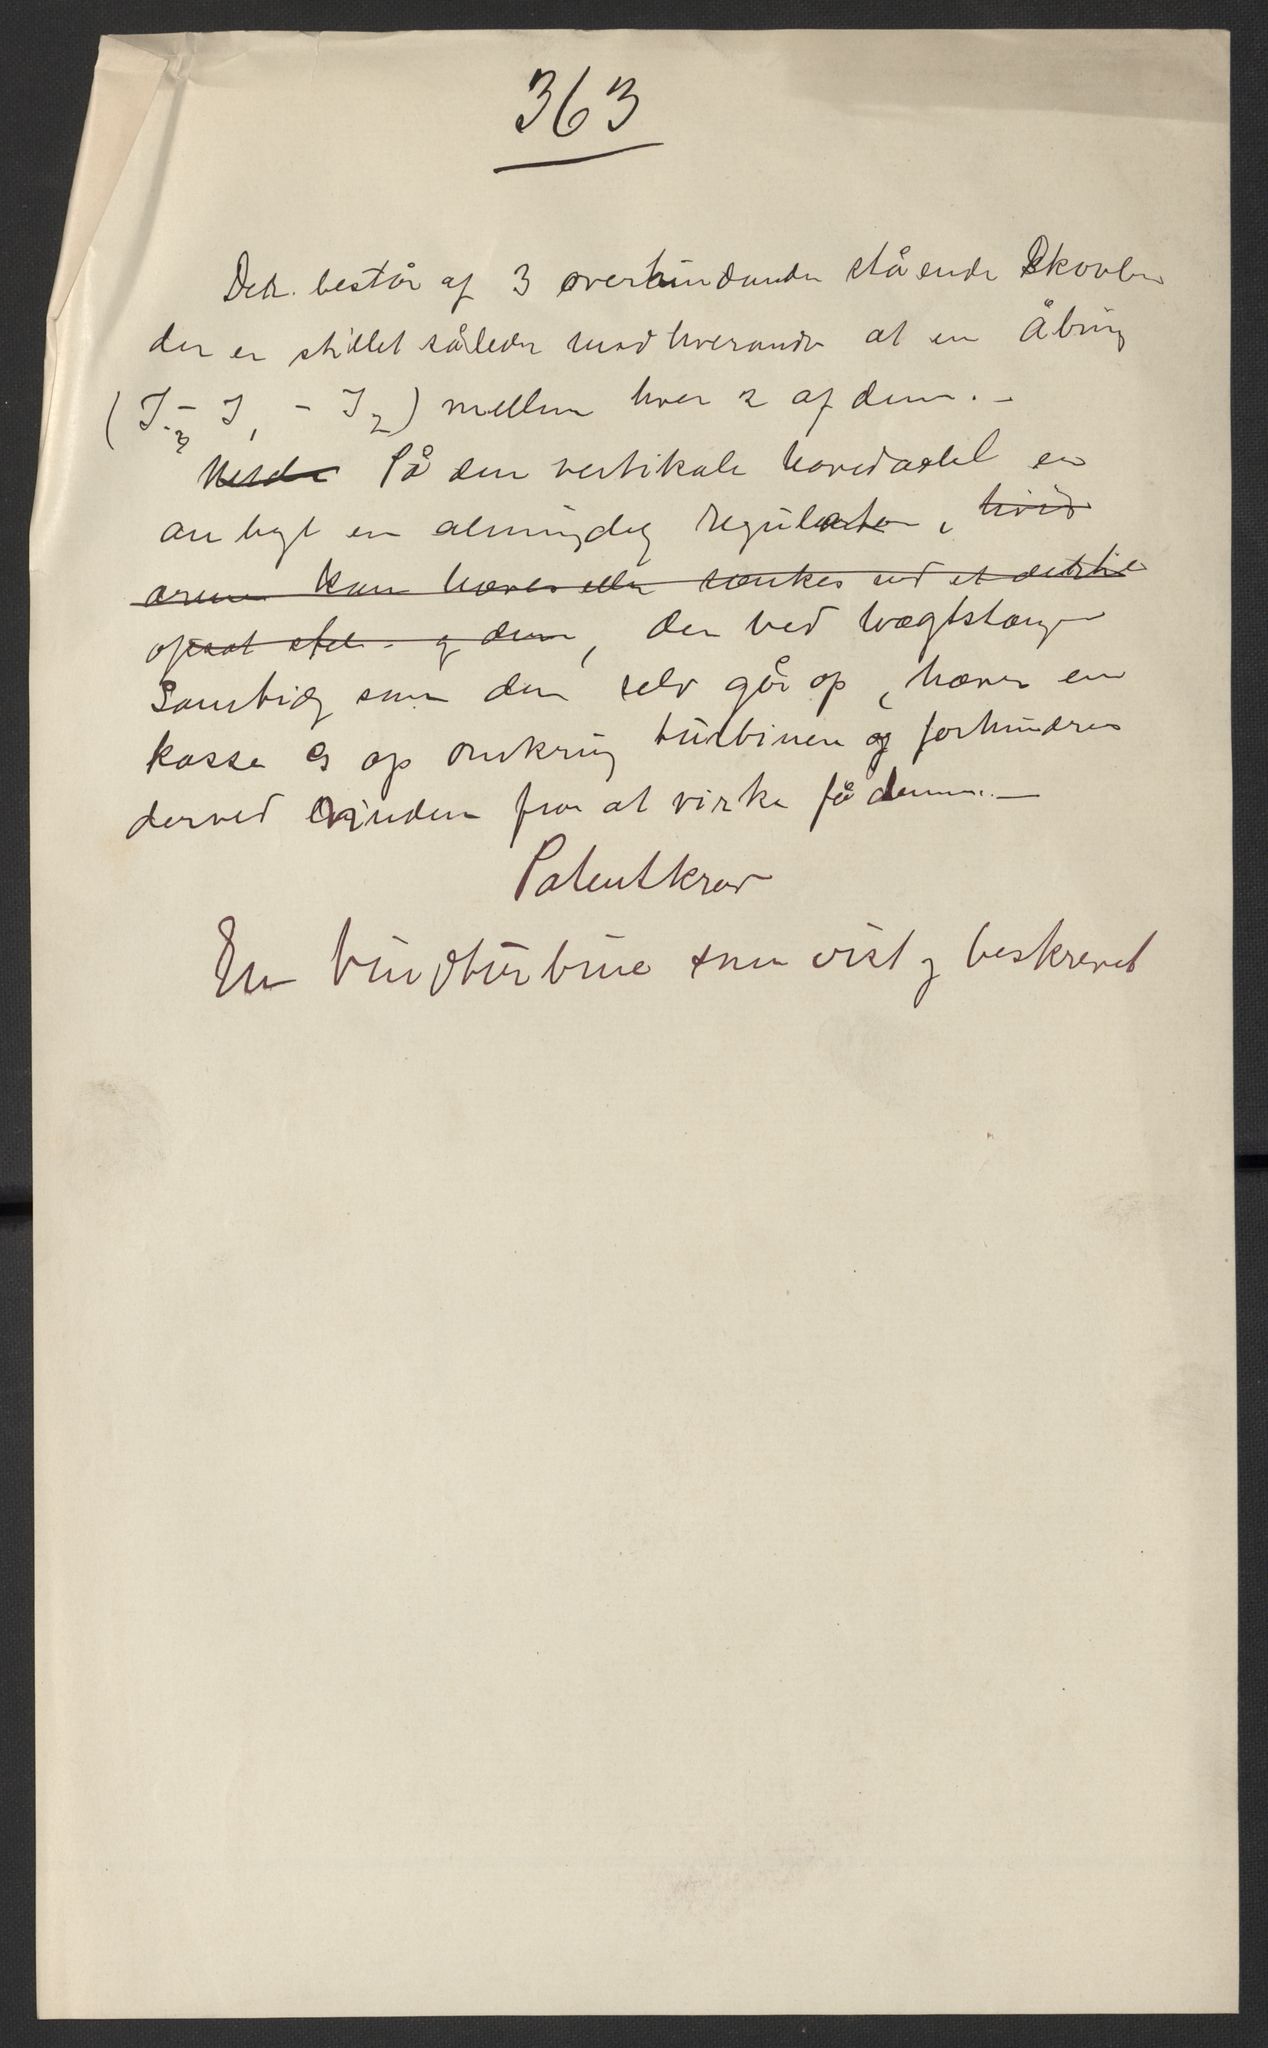 363
Det består af 3 overhinanden stående Skovle
der er stillet således mod hverandre at en Åbning
(I3 - I1 - I2) mellem hver 2 af dem. -
Nede På den vertikale hovedaxel er
anbragt en almindelig regulator, hvis
arme kan hæves eller sænkes ved et dertil
opsat og den, der ved Vægtstænger
Samtidig som den selv går op, hæver en
kasse op omkring turbinen og forhindrer
derved vinden fra at virke på denne. -
Patentkrav
En Vindturbine som vist og beskrevet